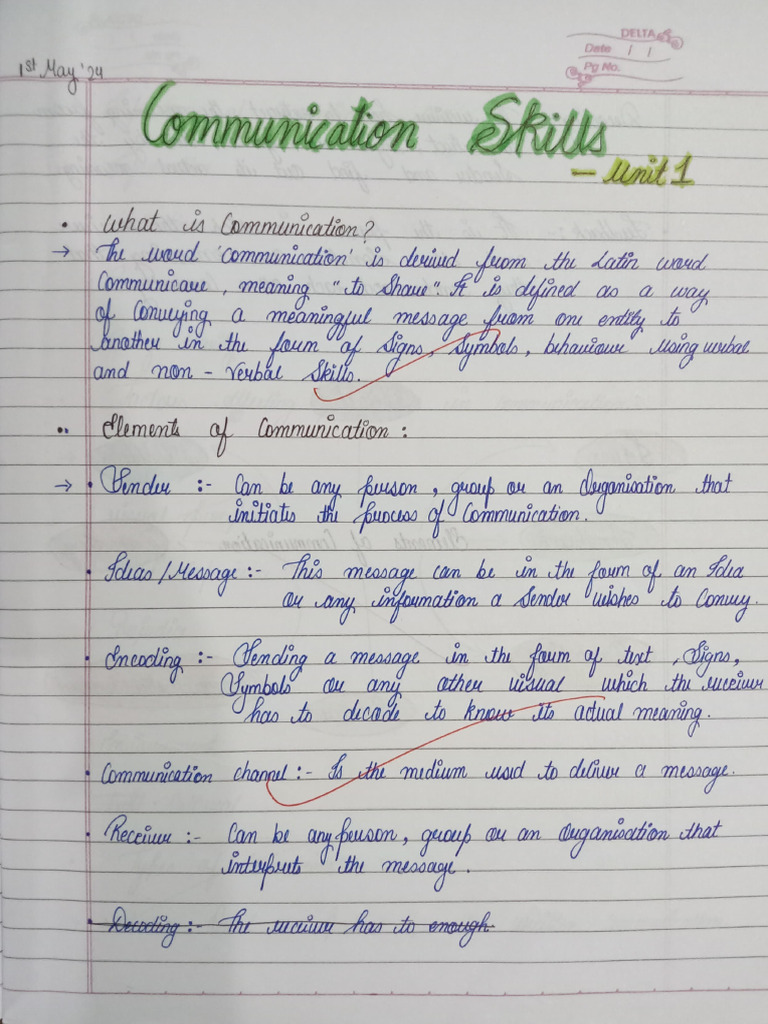 DELTA
Date / /
Pg No.
1st May '24
Communication Skills
- Unit 1
• What is Communication?
→ The word 'communication' is derived from the Latin word
Communicare, meaning "to Share". It is defined as a way
of Conveying a meaningful message from one entity to
another in the form of Signs, Symbols, behaviour using verbal
and non - verbal Skills.
•• Elements of Communication :
→ • Sender :- Can be any person, group or an Organisation that
initiates the process of Communication.
• Ideas / Message :- This message can be in the form of an Idea
or any information a Sender wishes to Convey.
• Encoding :- Sending a message in the form of text, Signs,
Symbols or any other visual which the receiver
has to decade to know its actual meaning.
• Communication channel :- Is the medium used to deliver a message.
• Receiver :- Can be any person, group or an Organisation that
interprets the message.
• Decoding :- The receiver has to enough